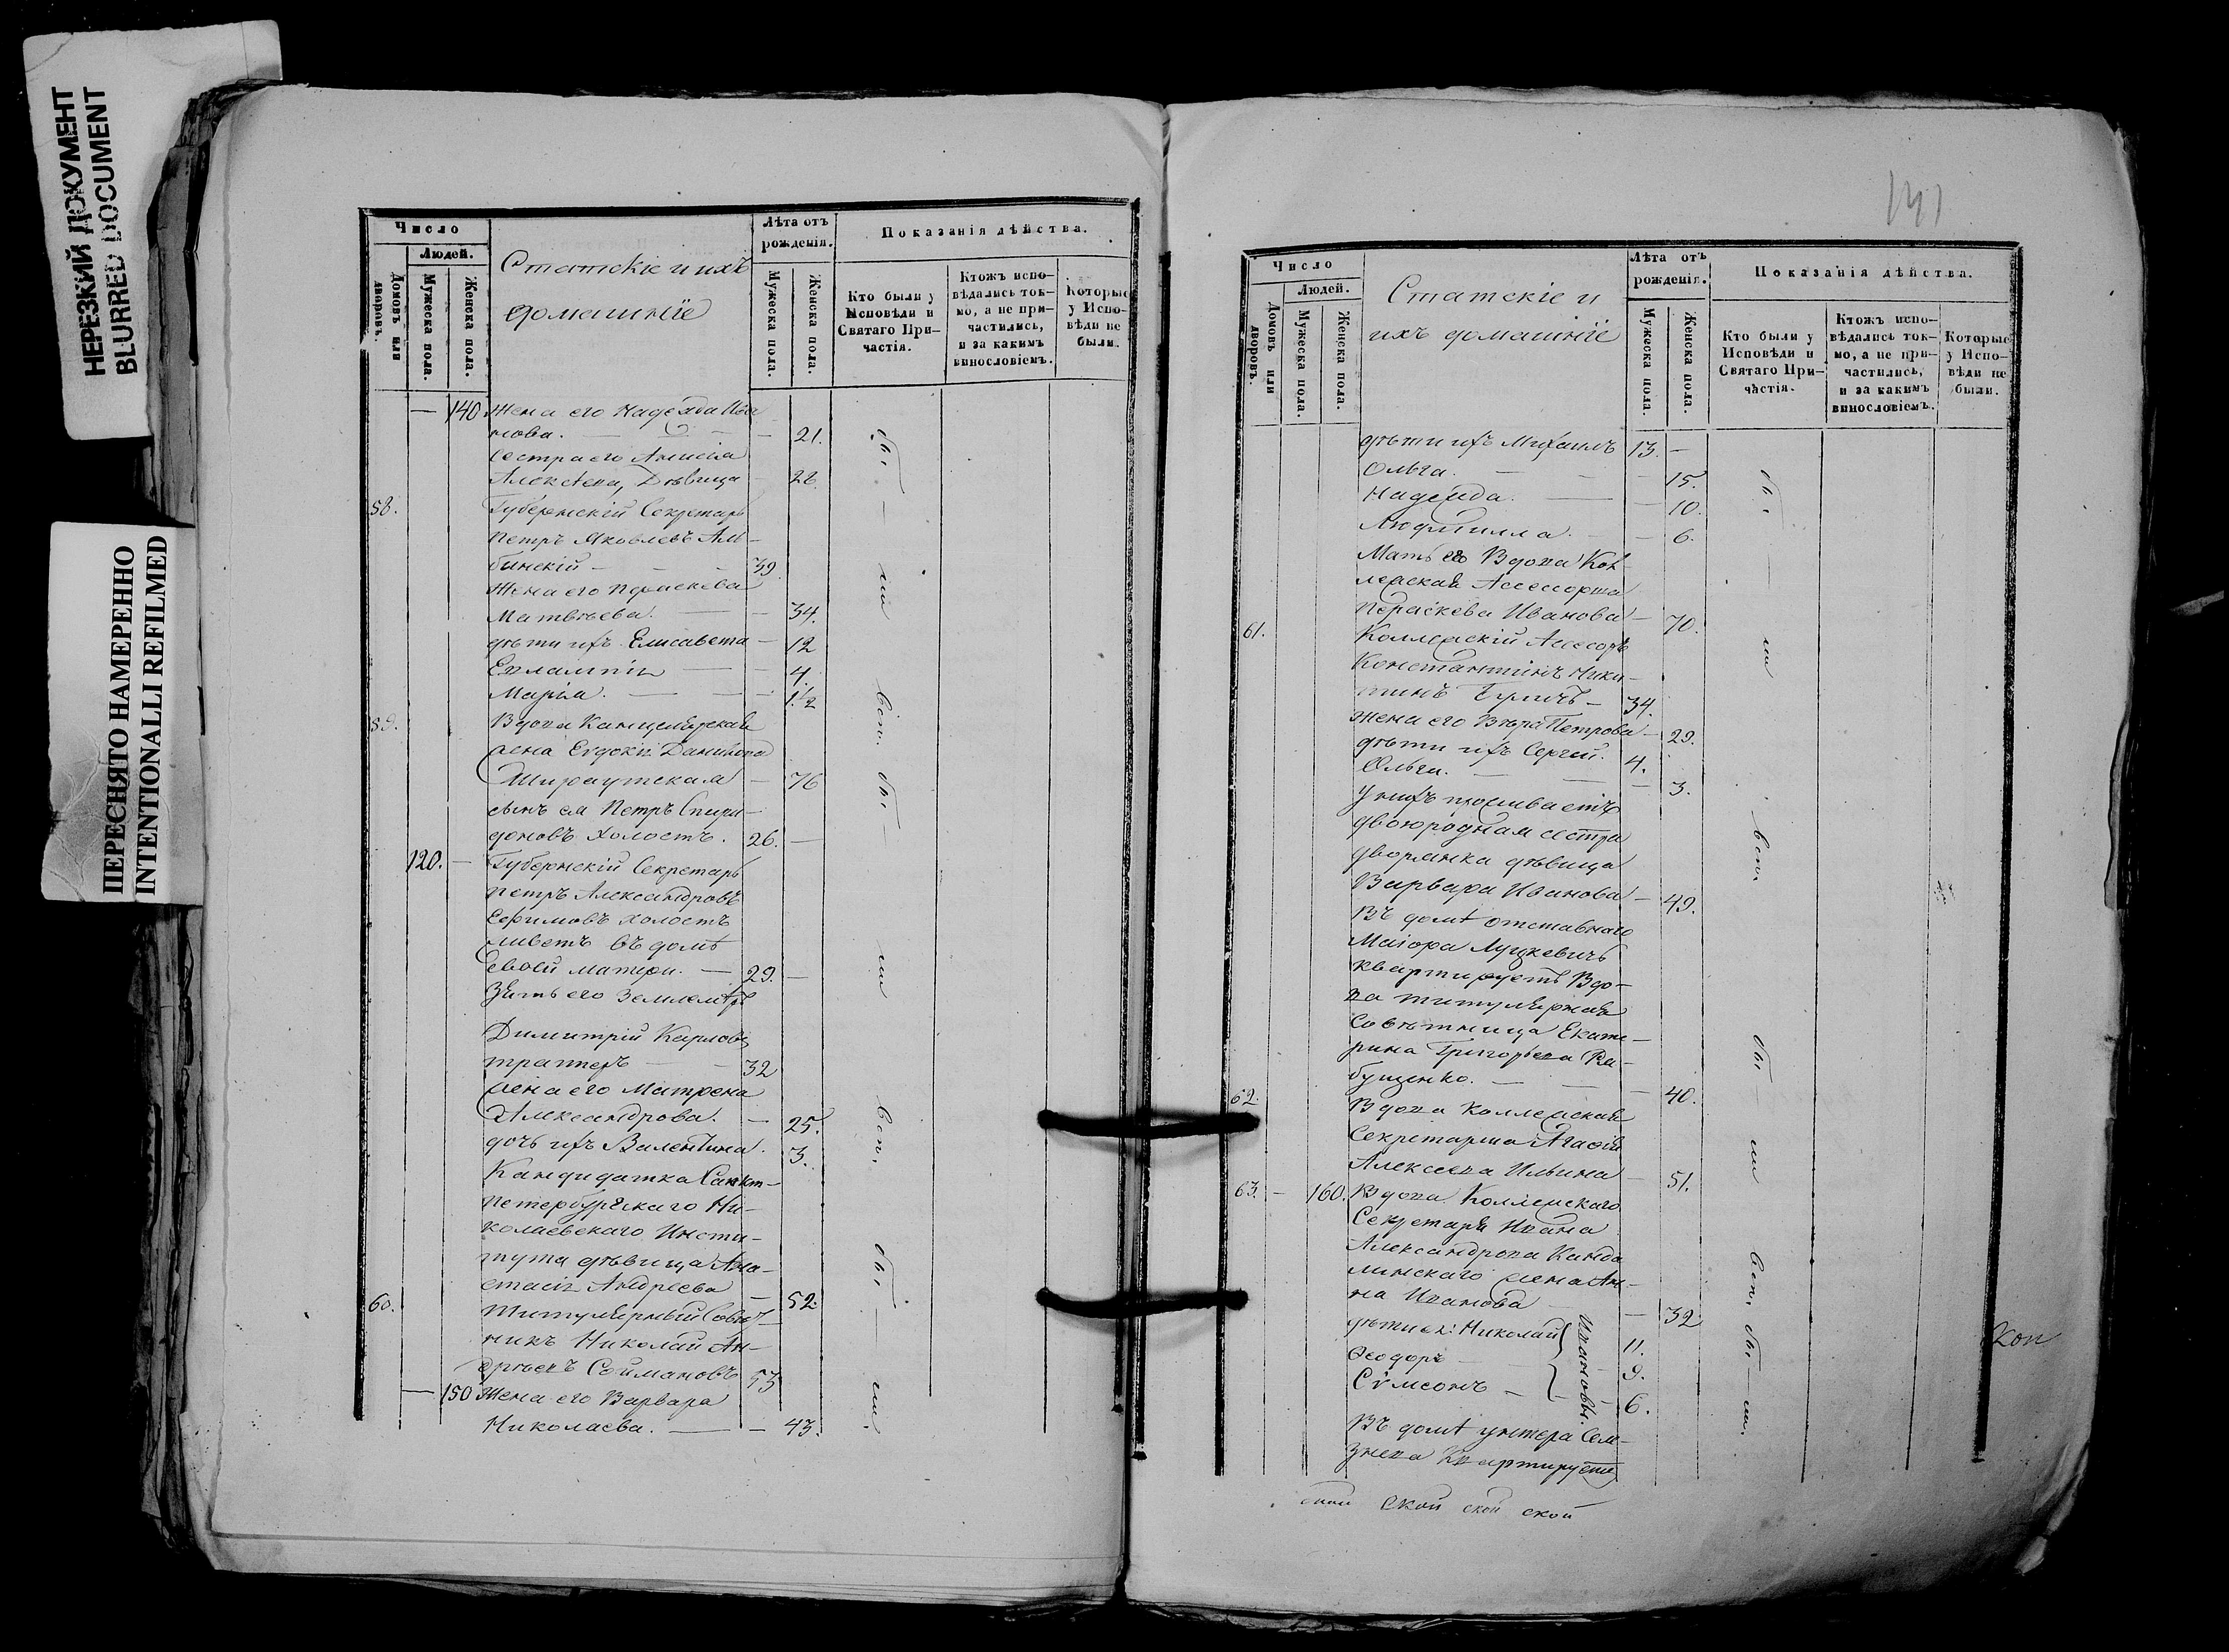 НЕРЕЗКИЙ ДОКУМЕНТ
BLURRED DOCUMENT
ПЕРЕСНЯТО НАМЕРЕННО
INTENTIONALLI REFILMED
Число
Людей.
Домовъ или дворовъ.
Мужеска пола.
Женска пола.
Статскіе и ихъ
домашніе
Лѣта отъ
рожденія.
Мужеска пола.
Женска пола.
Показанія дѣйства.
Кто были у
Исповѣди и
Святаго При-
частія.
Ктожъ испо-
вѣдались ток-
мо, а не при-
частились,
и за какимъ
винословіемъ.
Которые
у Испо-
вѣди не
были.
— 140 Жена его Надежда Ива
нова. — — 21.
Сестра его
Дѣвица — 28
58. Губернскій Секретарь
Петръ Яковлевъ Ал-
бинскій — — 39.
Жена его Параскева
Матвѣева. — — 34.
дѣти ихъ Елисавета — 12
Евлампія — — 4.
Марія. — — 1 1/2
59. Вдова Канцелярская
жена Евдокія Данилова
— 76
сынъ ея Петръ Спири-
доновъ холостъ. 26. —
120. — Губернскій Секретарь
Петръ Александровъ
Ефимовъ холостъ
живетъ въ домѣ
своей матери. — 29. —
Зять его Землемѣръ
Димитрій Карловъ
— 32
жена его Матрена
Александрова. — 25.
дочь ихъ Валентина. 3.
Кандидатка Санкт-
петербургскаго Ни-
колаевскаго Инсти-
тута дѣвица Ана-
стасія Андреева — 52.
60. Титулярный Совѣт-
никъ Николай Ан-
дреевъ Сеймановъ 53
— 150 Жена его Варвара
Николаева. — — 43.
бы — ли
вси.
бы — ли
вси,
бы — ли.
141
Число
Людей.
Домовъ или дворовъ.
Мужеска пола.
Женска пола.
Статскіе и
ихъ домашніе
Лѣта отъ
рожденія.
Мужеска пола.
Женска пола.
Показанія дѣйства.
Кто были у
Исповѣди и
Святаго При-
частія.
Ктожъ испо-
вѣдались ток-
мо, а не при-
частились,
и за какимъ
винословіемъ.
Которые
у Испо-
вѣди не
были.
дѣти ихъ Михаилъ 13. —
Ольга. — — 15.
Надежда. — — 10.
Людмилла. — — 6.
Мать его Вдова Кол
лежская Асессорша
Параскева Иванова — 70.
61. Коллежскій Асессоръ
Константинъ Ники-
тинъ Буличъ — 34.
жена его Вѣра Петрова — 29.
дѣти ихъ Сергій. 4.
Ольга. — — 3.
У нихъ проживаетъ
двоюродная сестра
дворянка дѣвица
Варвара Иванова — 49.
Въ домѣ отставнаго
Маіора Луцкевичъ
квартируетъ Вдо-
ва титулярная
Совѣтница Екате-
рина Григорьева Ра-
бущенко. — — 40.
62. Вдова Коллежская
Секретарша Агафія
Алексеева Ильина — 51.
63. — 160. Вдова Коллежскаго
Секретаря Ивана
Александрова Канда
линскаго жена Ан-
на Иванова — 32
дѣти ея: Николай 11.
Ѳеодоръ — 9.
Сѵмеонъ — 6.
Ивановы.
Въ домѣ унтера Сели-
знева Квартируетъ
бы — ли
вси
бы — ли
вси,
бы — ли.
Кол
ской ской ской